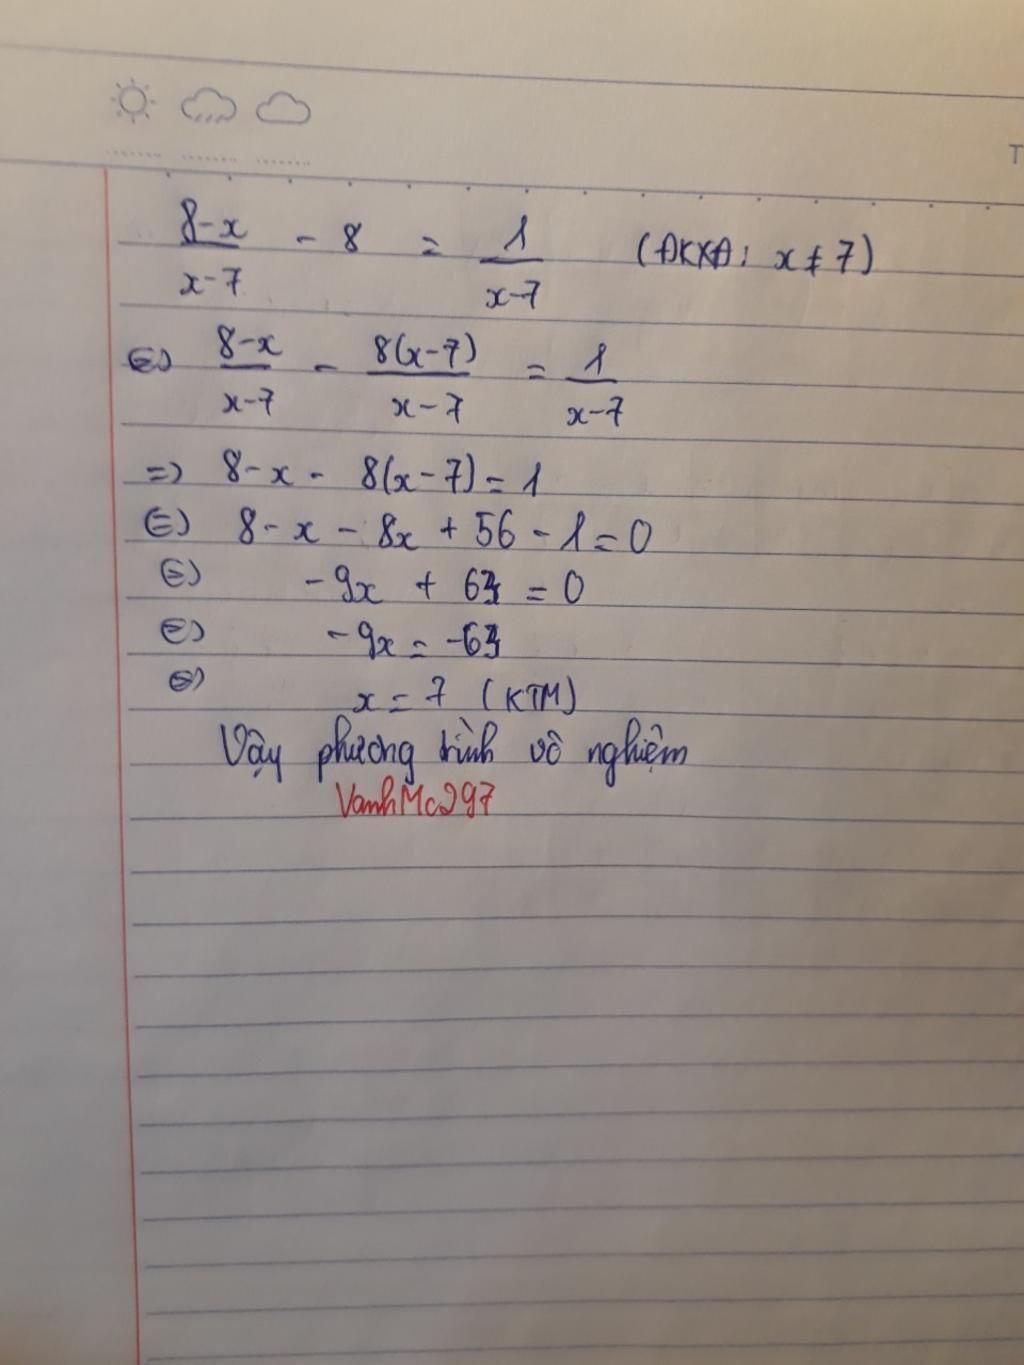 T
8-x/x-7 - 8 = 1/x-7 (ĐKXĐ: x ≠ 7)
⇔ 8-x/x-7 - 8(x-7)/x-7 = 1/x-7
=> 8-x - 8(x-7) = 1
⇔ 8 - x - 8x + 56 - 1 = 0
⇔ -9x + 63 = 0
⇔ -9x = -63
⇔ x = 7 (KTM)
Vậy phương trình vô nghiệm
VanhMc297